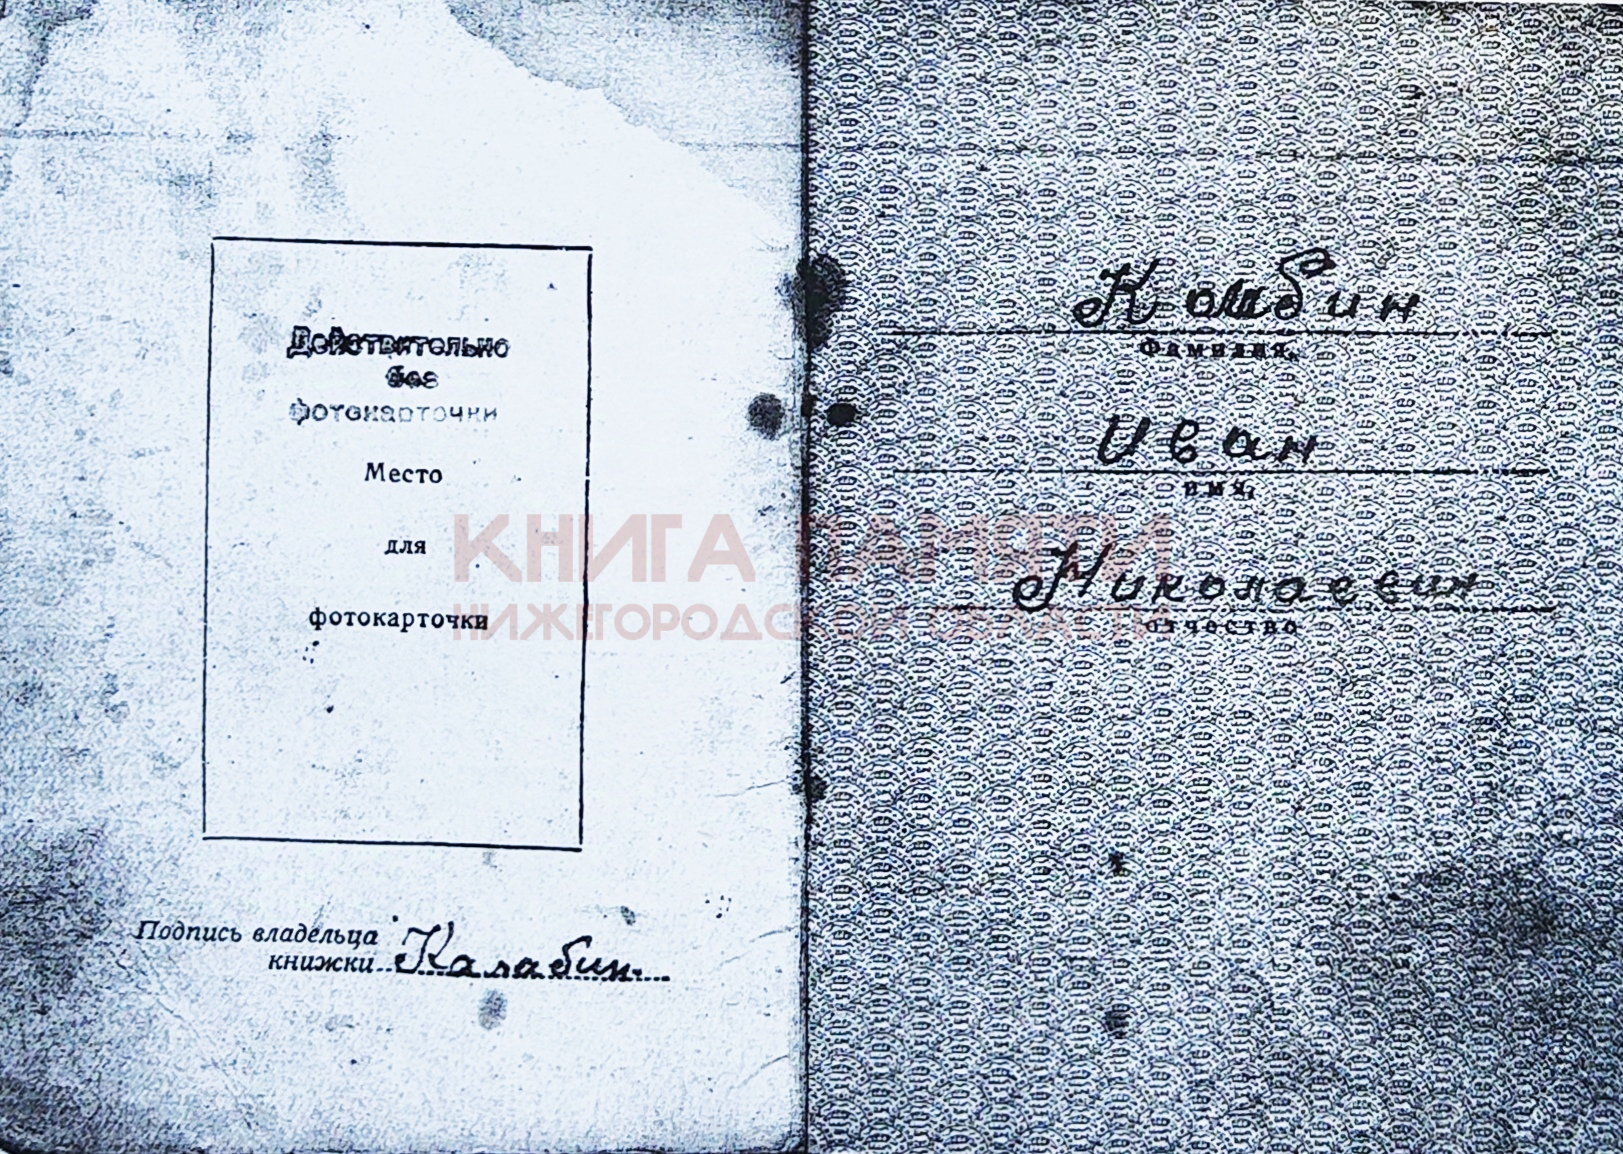 Действительно
без
фотокарточки
Место
для
фотокарточки
Подпись владельца
книжки Калабин
Калабин
Фамилия,
Иван
имя,
Николаевич
отчество
КНИГА ПАМЯТИ
НИЖЕГОРОДСКОЙ ОБЛАСТИ